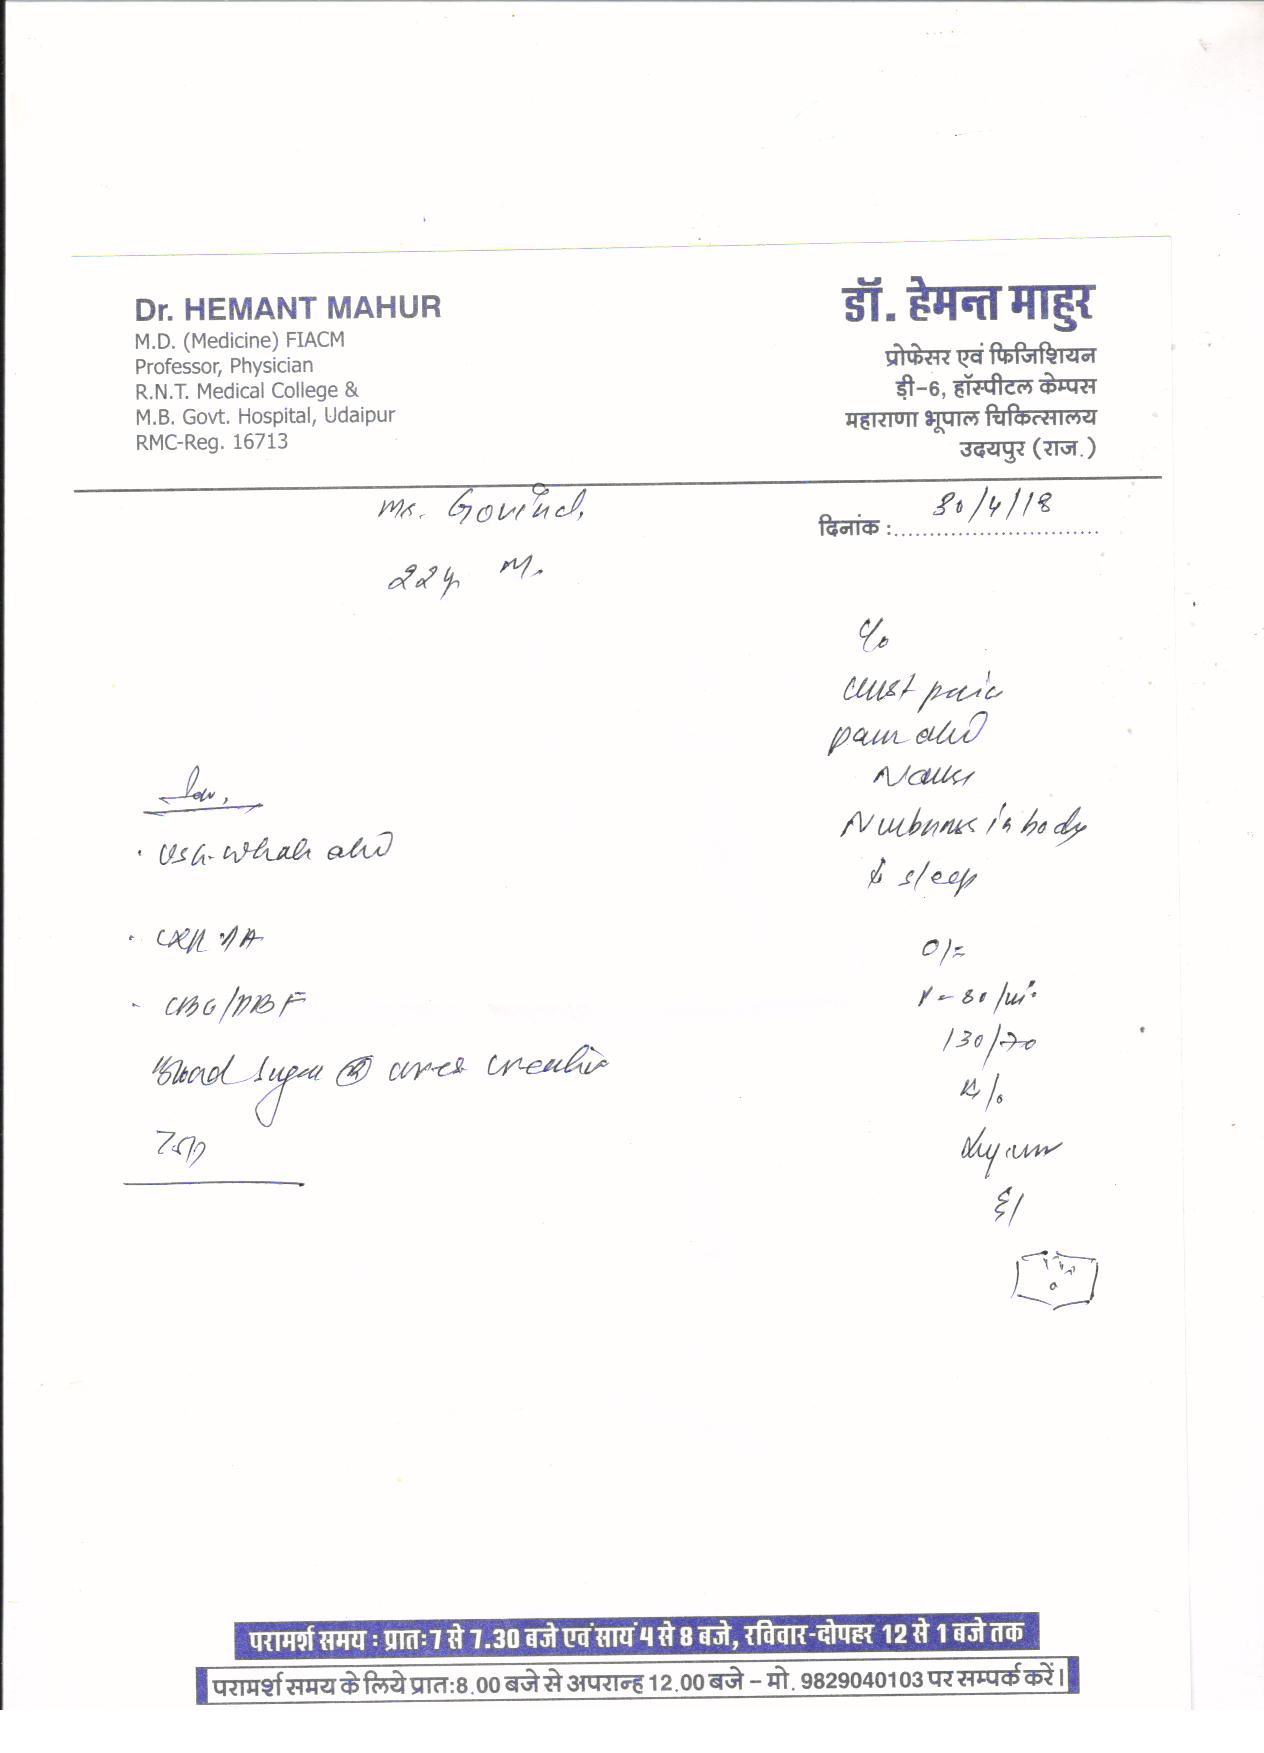 Dr. HEMANT MAHUR
M.D. (Medicine) FIACM
Professor, Physician
R.N.T. Medical College &
M.B. Govt. Hospital, Udaipur
RMC-Reg. 16713
डॉ. हेमन्त माहुर
प्रोफेसर एवं फिजिशियन
ड़ी-6, हॉस्पीटल केम्पस
महाराणा भूपाल चिकित्सालय
उदयपुर (राज.)
Mr. Govind,
दिनांक :............................ 30/4/18
22y M.
C/o
chest pain
pain abd
Nausea
Numbness in body
↓ sleep
O/E
P - 80 /mi
130/70
Inv,
· USG- whole abd
· CXR PA
- CBC/PBF
Blood Sugar (R) urea creatinine
परामर्श समय : प्रातः 7 से 7.30 बजे एवं सायं 4 से 8 बजे, रविवार-दोपहर 12 से 1 बजे तक
परामर्श समय के लिये प्रात:8.00 बजे से अपरान्ह 12.00 बजे – मो. 9829040103 पर सम्पर्क करें।